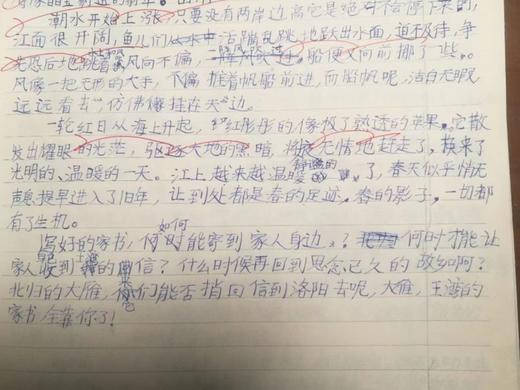 潮水开始上涨，只要没有两岸边高它是绝对不会停下来的，
江面很开阔，鱼儿们活蹦乱跳地跃出水面，迫不及待，争
先恐后地跳着，风向不偏，船便又向前挪了一些。
风像一把无形的大手，不偏推着帆船前进，而船帆呢，洁白无暇，
远远看去，仿佛像挂在天边。
一轮红日从海上升起，红彤彤的像极了熟透的苹果。它散
发出耀眼的光茫，大地的黑暗将夜无情地赶走了，换来了
光明的、温暖的一天。江上静谧的越来越温暖了，春天似乎悄无
声息提早进入了旧年，让到处都是春的足迹，春的影子，一切都
有了生机。
写好的家书，如何何时能寄到家人身边？何时才能让
家人收到的信？什么时候再回到思念已久的故乡啊？
北归的大雁，你们能否捎回信到洛阳去呢，大雁，王湾的
家书全靠你了！